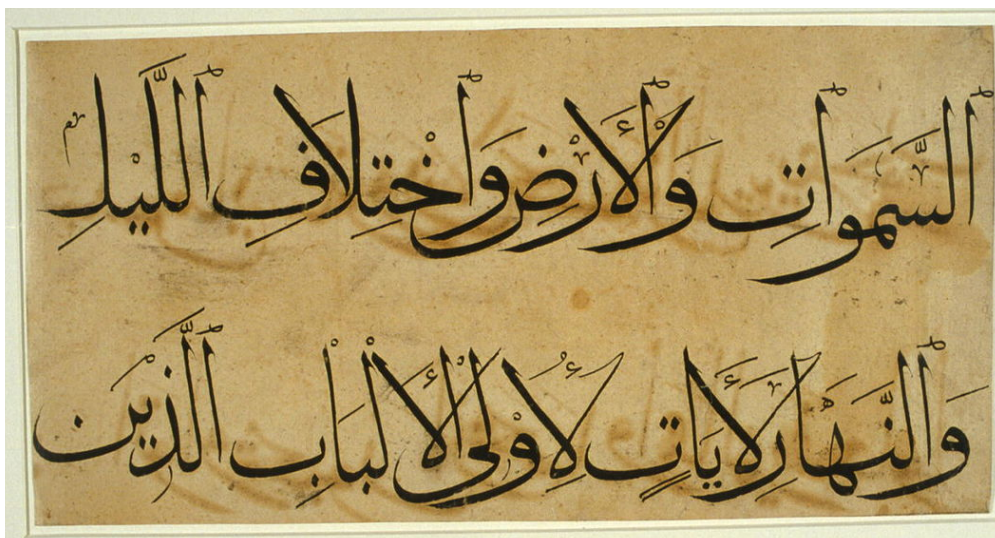 السَّمَوَاتِ وَالْأَرْضِ وَاخْتِلَافِ اللَّيْلِ
وَالنَّهَارِ لَأَيَاتٍ لِأُولِى الْأَلْبَابِ الَّذِيْنَ